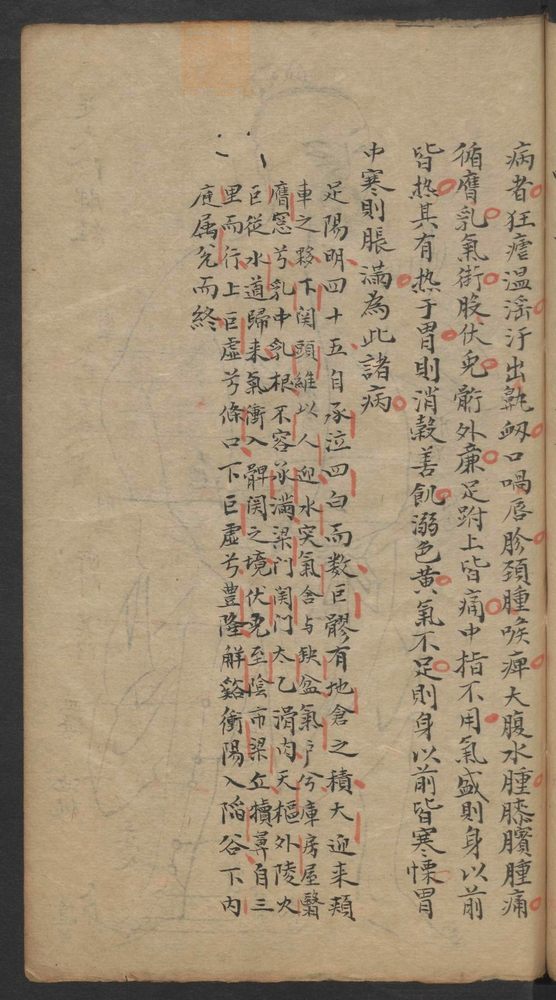 病者狂瘧温滛汗出鼽衂口喎唇胗頚腫喉痺大腹水腫膝臏腫痛
循膺乳氣街股伏兎䯒外廉足跗上皆痛中指不用氣盛則身以前
皆热其有热于胃則消穀善飢溺色黄氣不足則身以前皆寒慄胃
中寒則脹滿為此諸病
足陽明四十五自承泣四白而数巨髎有地倉之積大迎来頬
車之移下関頭維以人迎水突氣舎与缺盆氣户兮庫房屋翳
膺窓兮乳中乳根不容承滿梁门関门太乙滑肉天樞外陵大
巨從水道歸来氣衝入髀関之境伏兎至陰市梁丘犢鼻自三
里而行上巨虚兮條口下巨虚兮豊隆解谿衝陽入陷谷下内
庭属兊而終